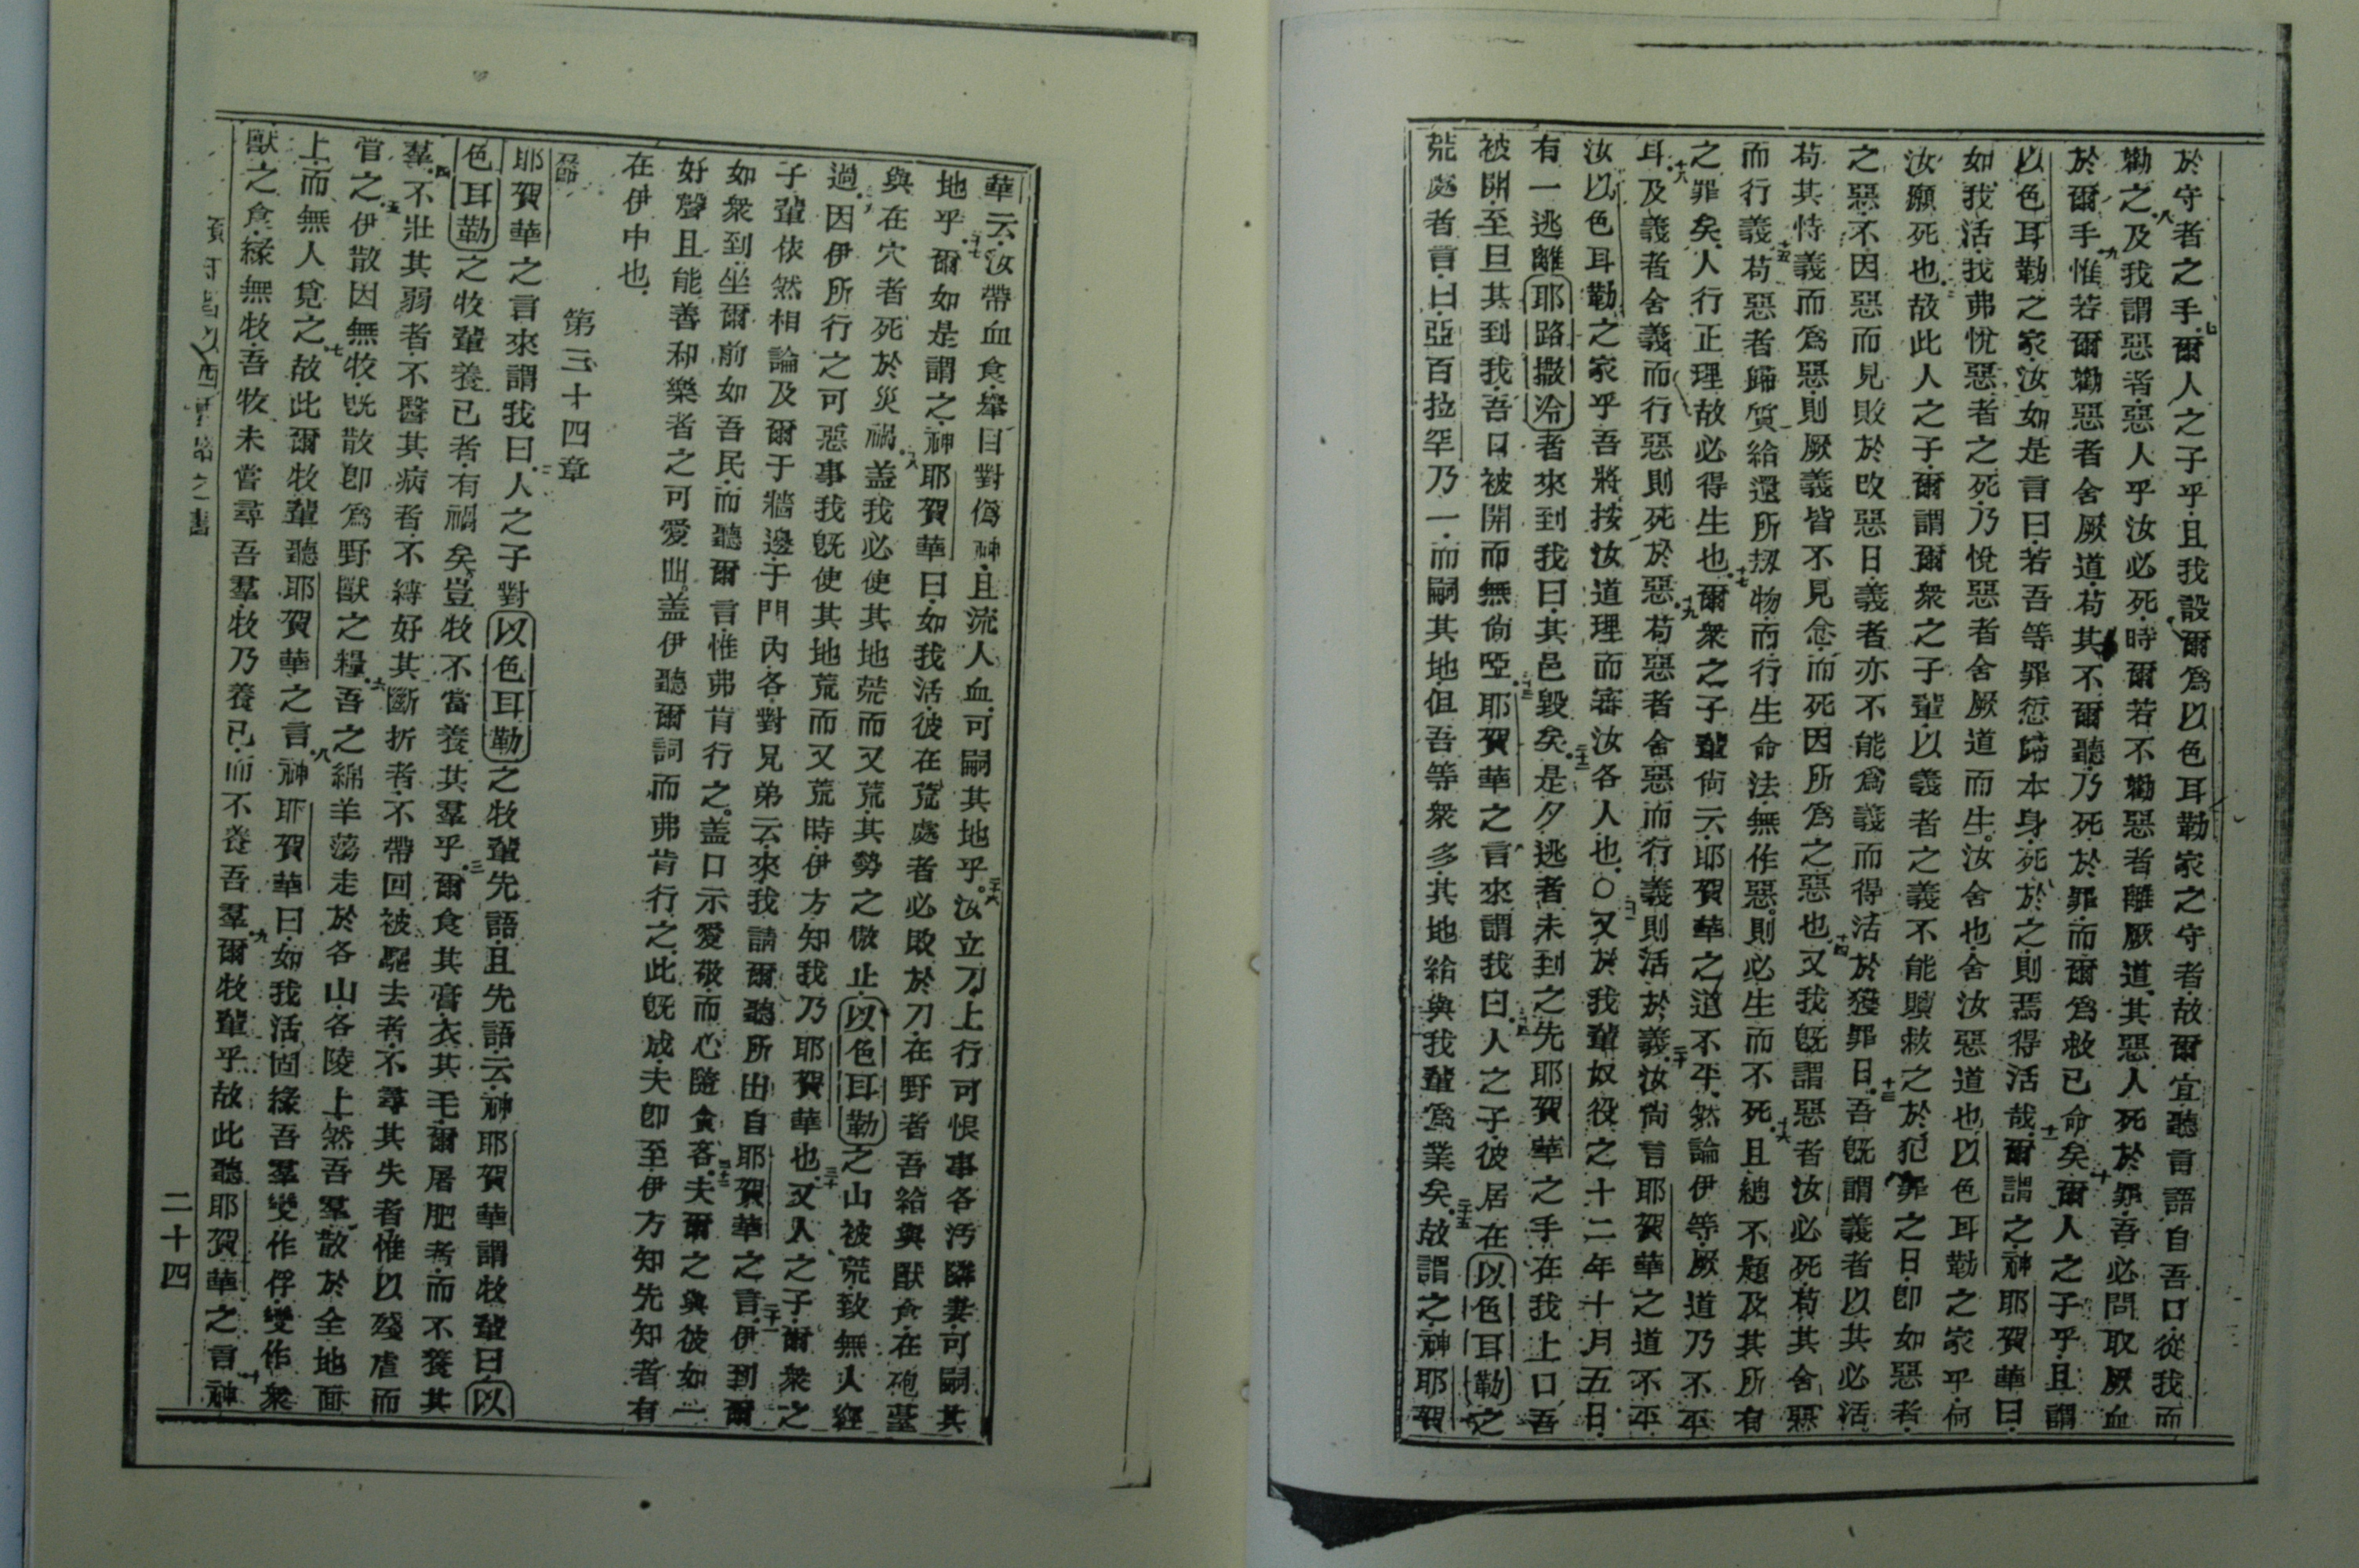 於守者之手七爾人之子乎且我設爾爲以色耳勒家之守者故爾宜聽言語自吾口從我而
勸之八及我謂惡者惡人乎汝必死時爾若不勸惡者離厥道其惡人死於罪吾必問取厥血
於爾手九惟若爾勸惡者舍厥道苟其不爾聽乃死於罪而爾爲救已命矣十爾人之子乎且謂
以色耳勒之家汝如是言曰若吾等罪愆歸本身死於之則焉得活哉十一爾謂之神耶賀華曰
如我活我弗悅惡者之死乃悅惡者舍厥道而生汝舍也舍汝惡道也以色耳勒之家乎何
汝願死也十二故此人之子爾謂爾衆之子輩以義者之義不能贖救之於犯罪之日卽如惡者
之惡不因惡而見敗於改惡日義者亦不能爲義而得活於獲罪日十三吾旣謂義者以其必活
苟其恃義而爲惡則厥義皆不見念而死因所爲之惡也十四又我旣謂惡者汝必死苟其舍惡
而行義十五苟惡者歸質給還所刼物而行生命法無作惡則必生而不死十六且總不題及其所有
之罪矣人行正理故必得生也十七爾衆之子輩尙云耶賀華之道不平然論伊等厥道乃不平
耳十八及義者舍義而行惡則死於惡十九苟惡者舍惡而行義則活於義二十汝尙言耶賀華之道不平
汝以色耳勒之家乎吾將按汝道理而審汝各人也○二十一又於我輩奴役之十二年十月五日
有一逃離耶路撒冷者來到我曰其邑毀矣二十二是夕逃者未到之先耶賀華之手在我上口吾
被開至旦其到我吾口被開而無尙啞二十三耶賀華之言來謂我曰二十四人之子彼居在以色耳勒之
荒處者言曰亞百拉罕乃一而嗣其地但吾等衆多其地給與我輩爲業矣二十五故謂之神耶賀
華云汝帶血食舉目對僞神且流人血可嗣其地乎二十六汝立刀上行可恨事各汚隣妻可嗣其
地乎二十七爾如是謂之神耶賀華曰如我活彼在荒處者必敗於刀在野者吾給與獸食在砲墓
與在穴者死於災禍二十八盖我必使其地荒而又荒其勢之傲止以色耳勒之山被荒致無人經
過二十九因伊所行之可惡事我旣使其地荒而又荒時伊方知我乃耶賀華也三十又人之子爾衆之
子輩依然相論及爾于牆邊于門內各對兄弟云來我請爾聽所出自耶賀華之言三十一伊到爾
如衆到坐爾前如吾民而聽爾言惟弗肯行之盖口示愛敬而心隨貪吝三十二夫爾之與彼如一
好聲且能善和樂者之可愛曲盖伊聽爾詞而弗肯行之三十三此旣成夫卽至伊方知先知者有
在伊中也
第三十四章
耶賀華之言來謂我曰二人之子對以色耳勒之牧輩先語且先語云神耶賀華謂牧輩曰以
色耳勒之牧輩養已者有禍矣豈牧不當養其羣乎三爾食其膏衣其毛爾屠肥者而不養其
羣四不壯其弱者不醫其病者不縳好其斷折者不帶回被驅去者不尋其失者惟以殘虐而
管之五伊散因無牧旣散卽爲野獸之糧六吾之綿羊蕩走於各山各陵上然吾羣散於全地面
上而無人覓之七故此爾牧輩聽耶賀華之言八神耶賀華曰如我活固緣吾羣變作俘變作衆
獸之食緣無牧吾牧未嘗尋吾羣牧乃養已而不養吾羣九爾牧輩乎故此聽耶賀華之言十神
二十四